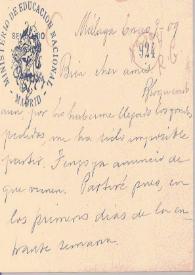 MINISTERIO DE EDUCACIÓN NACIONAL
MADRID
Málaga Enero 09
924
Bien cher ami:
aun por no haberme llegado los fondos
pedidos, me ha sido imposible
partir. Tengo ya anuncio de
que vienen. Partiré pues, en
los primeros días de la en-
trante semana.